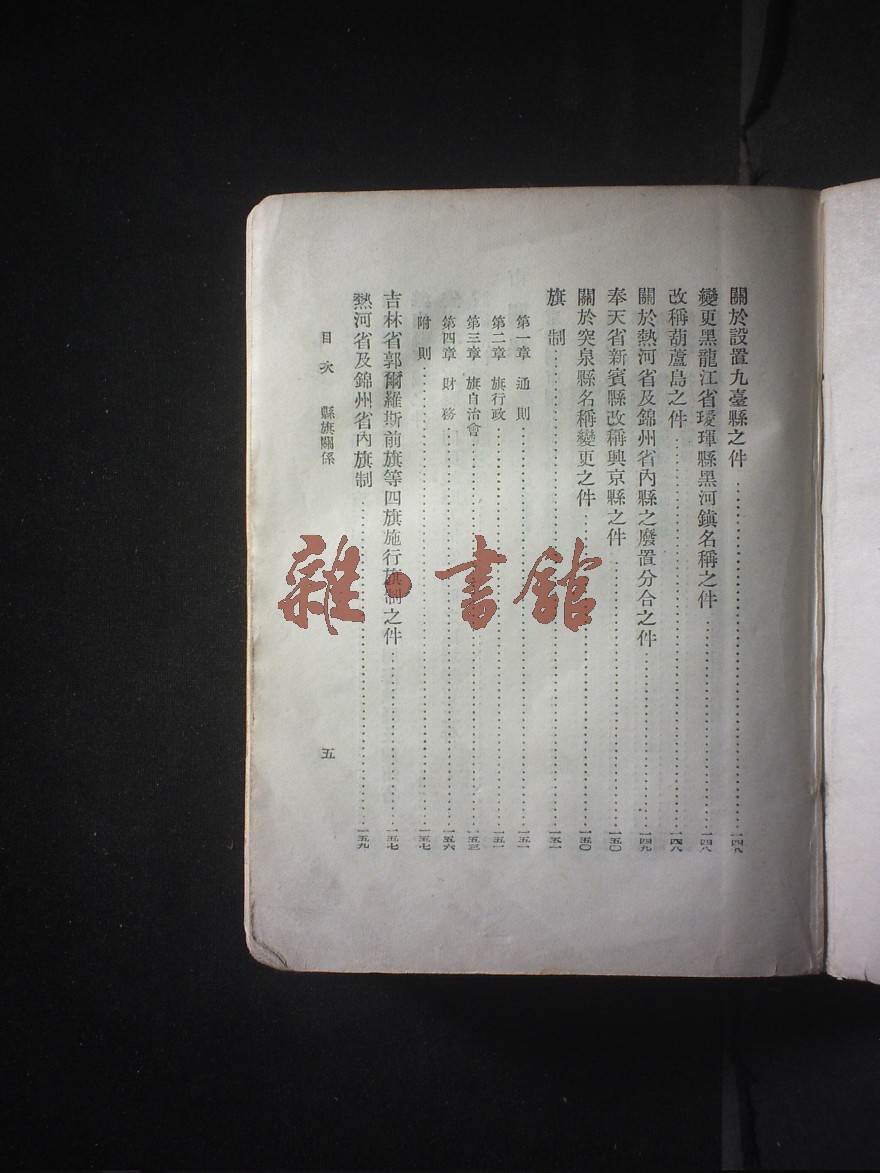 關於設置九臺縣之件…一四八
變更黑龍江省璦琿縣黑河鎮名稱之件…一四八
改稱葫蘆島之件…一四八
關於熱河省及錦州省內縣之廢置分合之件…一四九
奉天省新賓縣改稱興京縣之件…一五〇
關於突泉縣名稱變更之件…一五〇
旗制…一五一
第一章 通則…一五一
第二章 旗行政…一五一
第三章 旗自治會…一五三
第四章 財務…一五六
附則…一五七
吉林省郭爾羅斯前旗等四旗施行旗制之件…一五七
熱河省及錦州省內旗制…一五九
目次 縣旗關係 五
雜·書館